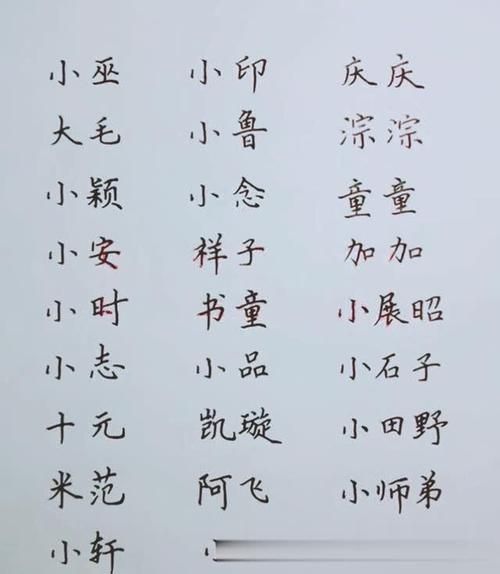 小巫 小印 庆庆
大毛 小鲁 淙淙
小颖 小念 童童
小安 祥子 加加
小时 书童 小展昭
小志 小品 小石子
十元 凯璇 小田野
米范 阿飞 小师弟
小轩